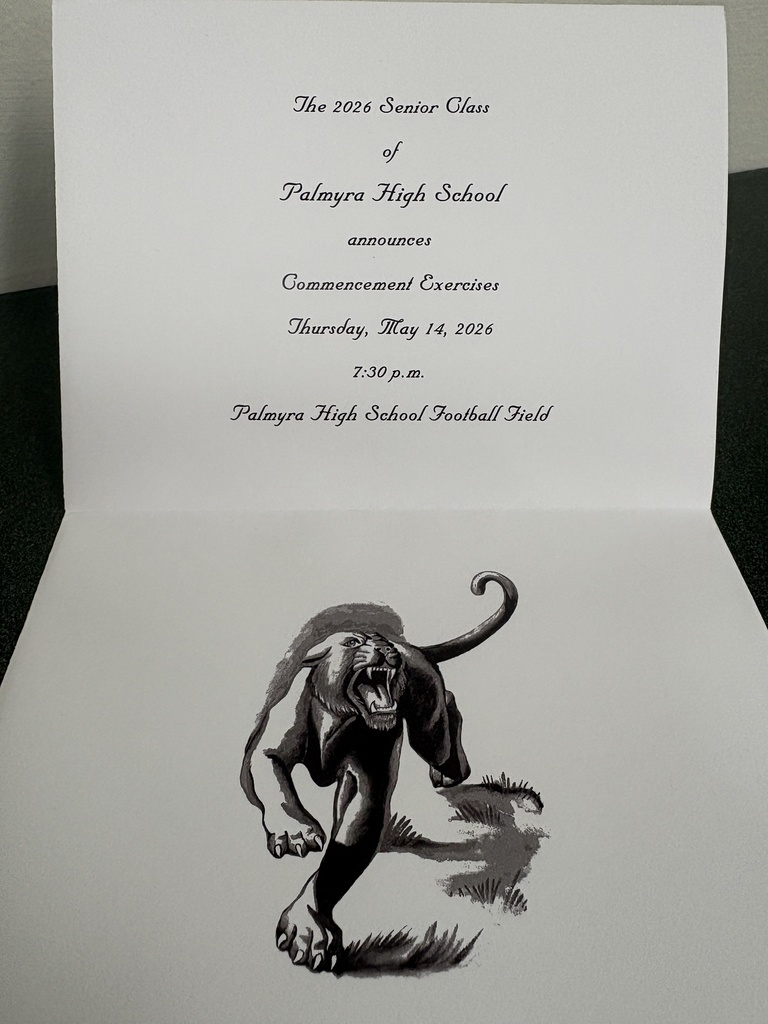 The 2026 Senior Class
of
Palmyra High School
announces
Commencement Exercises
Thursday, May 14, 2026
7:30 p.m.
Palmyra High School Football Field